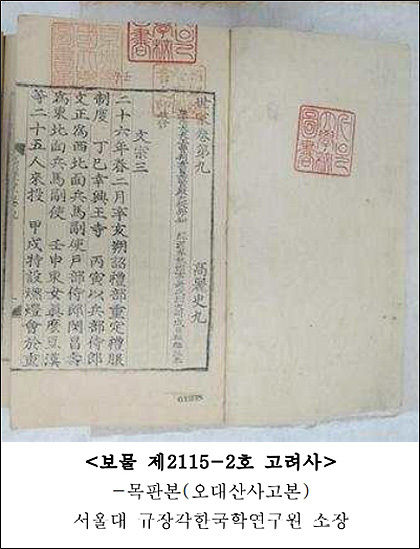 世家卷第九 高麗史九
文宗三
二十六年春二月辛亥朔詔禮部重定禮服
制度 丁巳幸興王寺 丙寅以兵部侍郎
文正爲西北面兵馬副使戶部侍郎閔昌壽
爲東北面兵馬副使 壬申東女眞麽豆漢
等二十五人來投 甲戌特設燃燈會於重
<보물 제2115-2호 고려사>
-목판본(오대산사고본)
서울대 규장각한국학연구원 소장